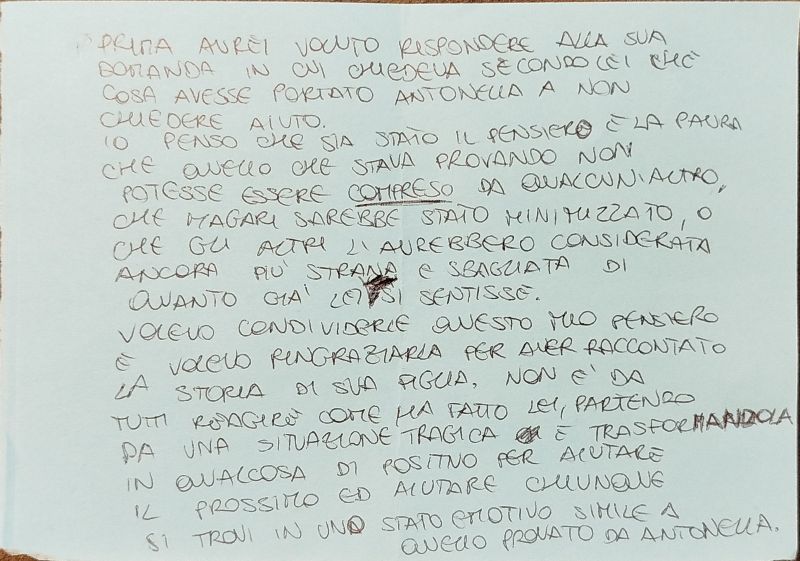 PRIMA AVREI VOLUTO RISPONDERE ALLA SUA
DOMANDA IN CUI CHIEDEVA SECONDO LEI CHE
COSA AVESSE PORTATO ANTONELLA A NON
CHIEDERE AIUTO.
IO PENSO CHE SIA STATO IL PENSIERO È LA PAURA
CHE QUELLO CHE STAVA PROVANDO NON
POTESSE ESSERE COMPRESO DA QUALCUN'ALTRO,
CHE MAGARI SAREBBE STATO MINIMIZZATO, O
CHE GLI ALTRI L'AVREBBERO CONSIDERATA
ANCORA PIÙ STRANA E SBAGLIATA DI
QUANTO GIÀ LEI SI SENTISSE.
VOLEVO CONDIVIDERLE QUESTO MIO PENSIERO
È VOLEVO RINGRAZIARLA PER AVER RACCONTATO
LA STORIA DI SUA FIGLIA. NON È DA
TUTTI REAGIRE COME HA FATTO LEI, PARTENDO
DA UNA SITUAZIONE TRAGICA È TRASFORMANDOLA
IN QUALCOSA DI POSITIVO PER AIUTARE
IL PROSSIMO ED AIUTARE CHIUNQUE
SI TROVI IN UNO STATO EMOTIVO SIMILE A
QUELLO PROVATO DA ANTONELLA.